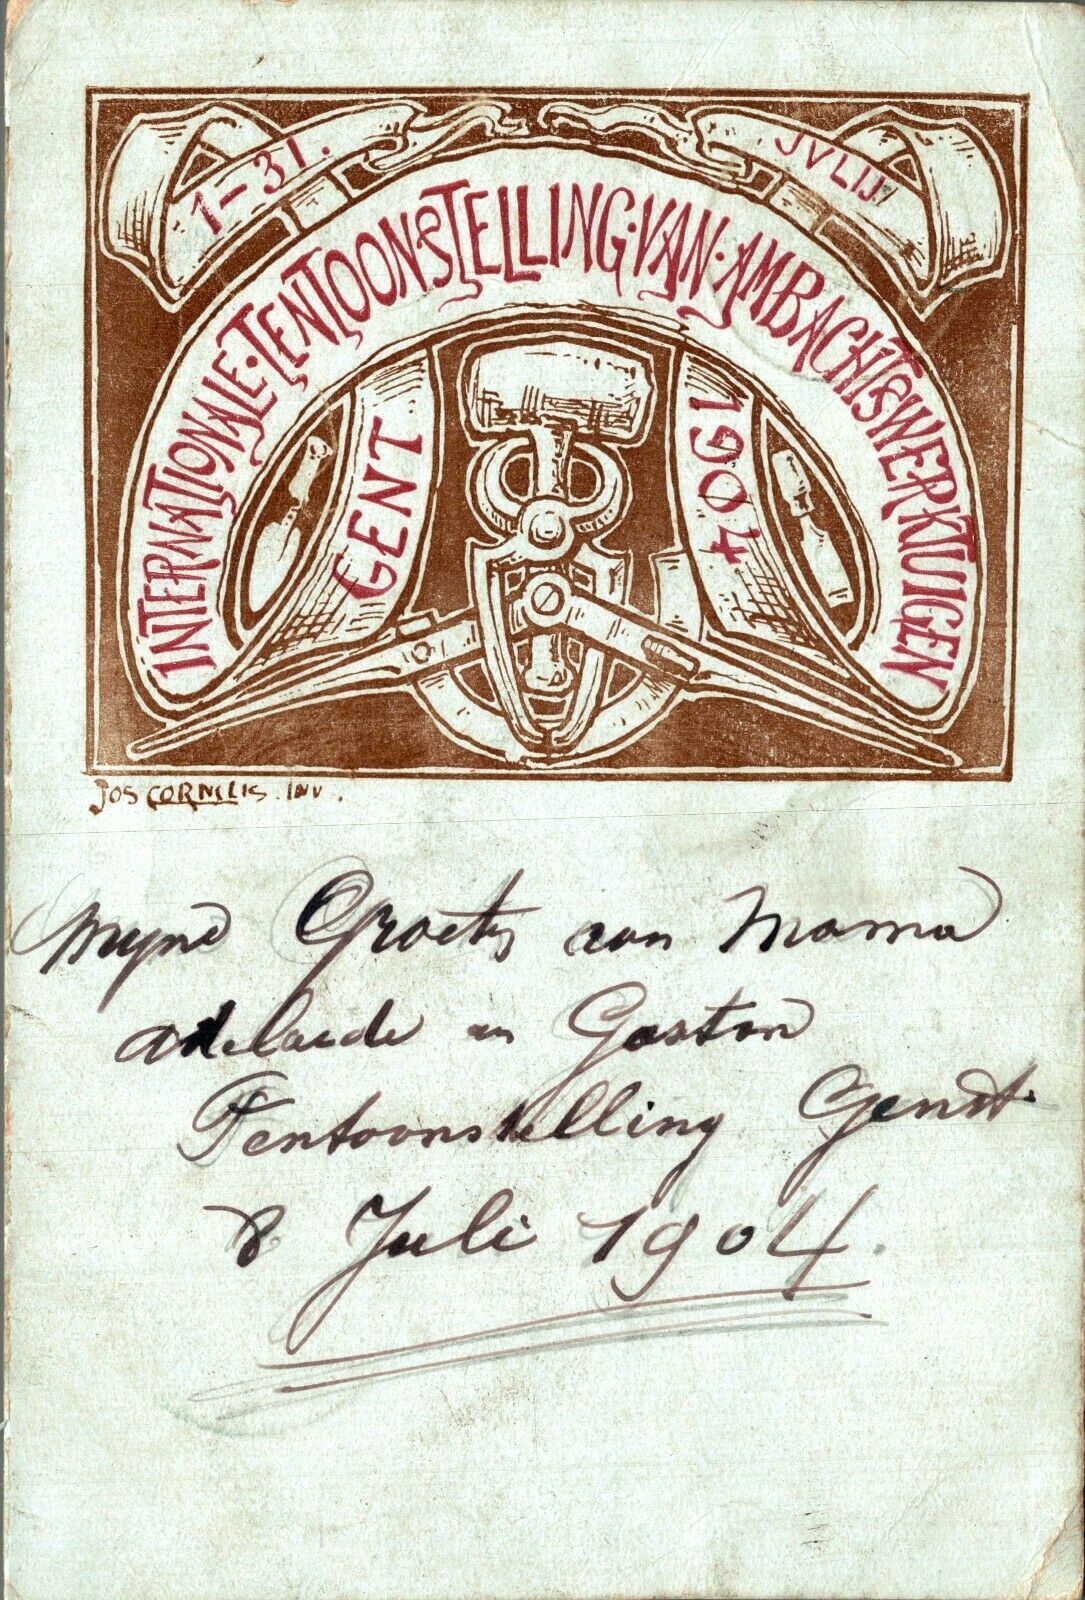 1-31. JVLIJ
INTERNATIONALE·TENTOONSTELLING·VAN·AMBACHTSWERKTUIGEN
GENT 1904
JOS CORNELIS. INV.
Myne Groeten aan Mama
adelaide en Gaston
Tentoonstelling Gendt.
8 Juli 1904.